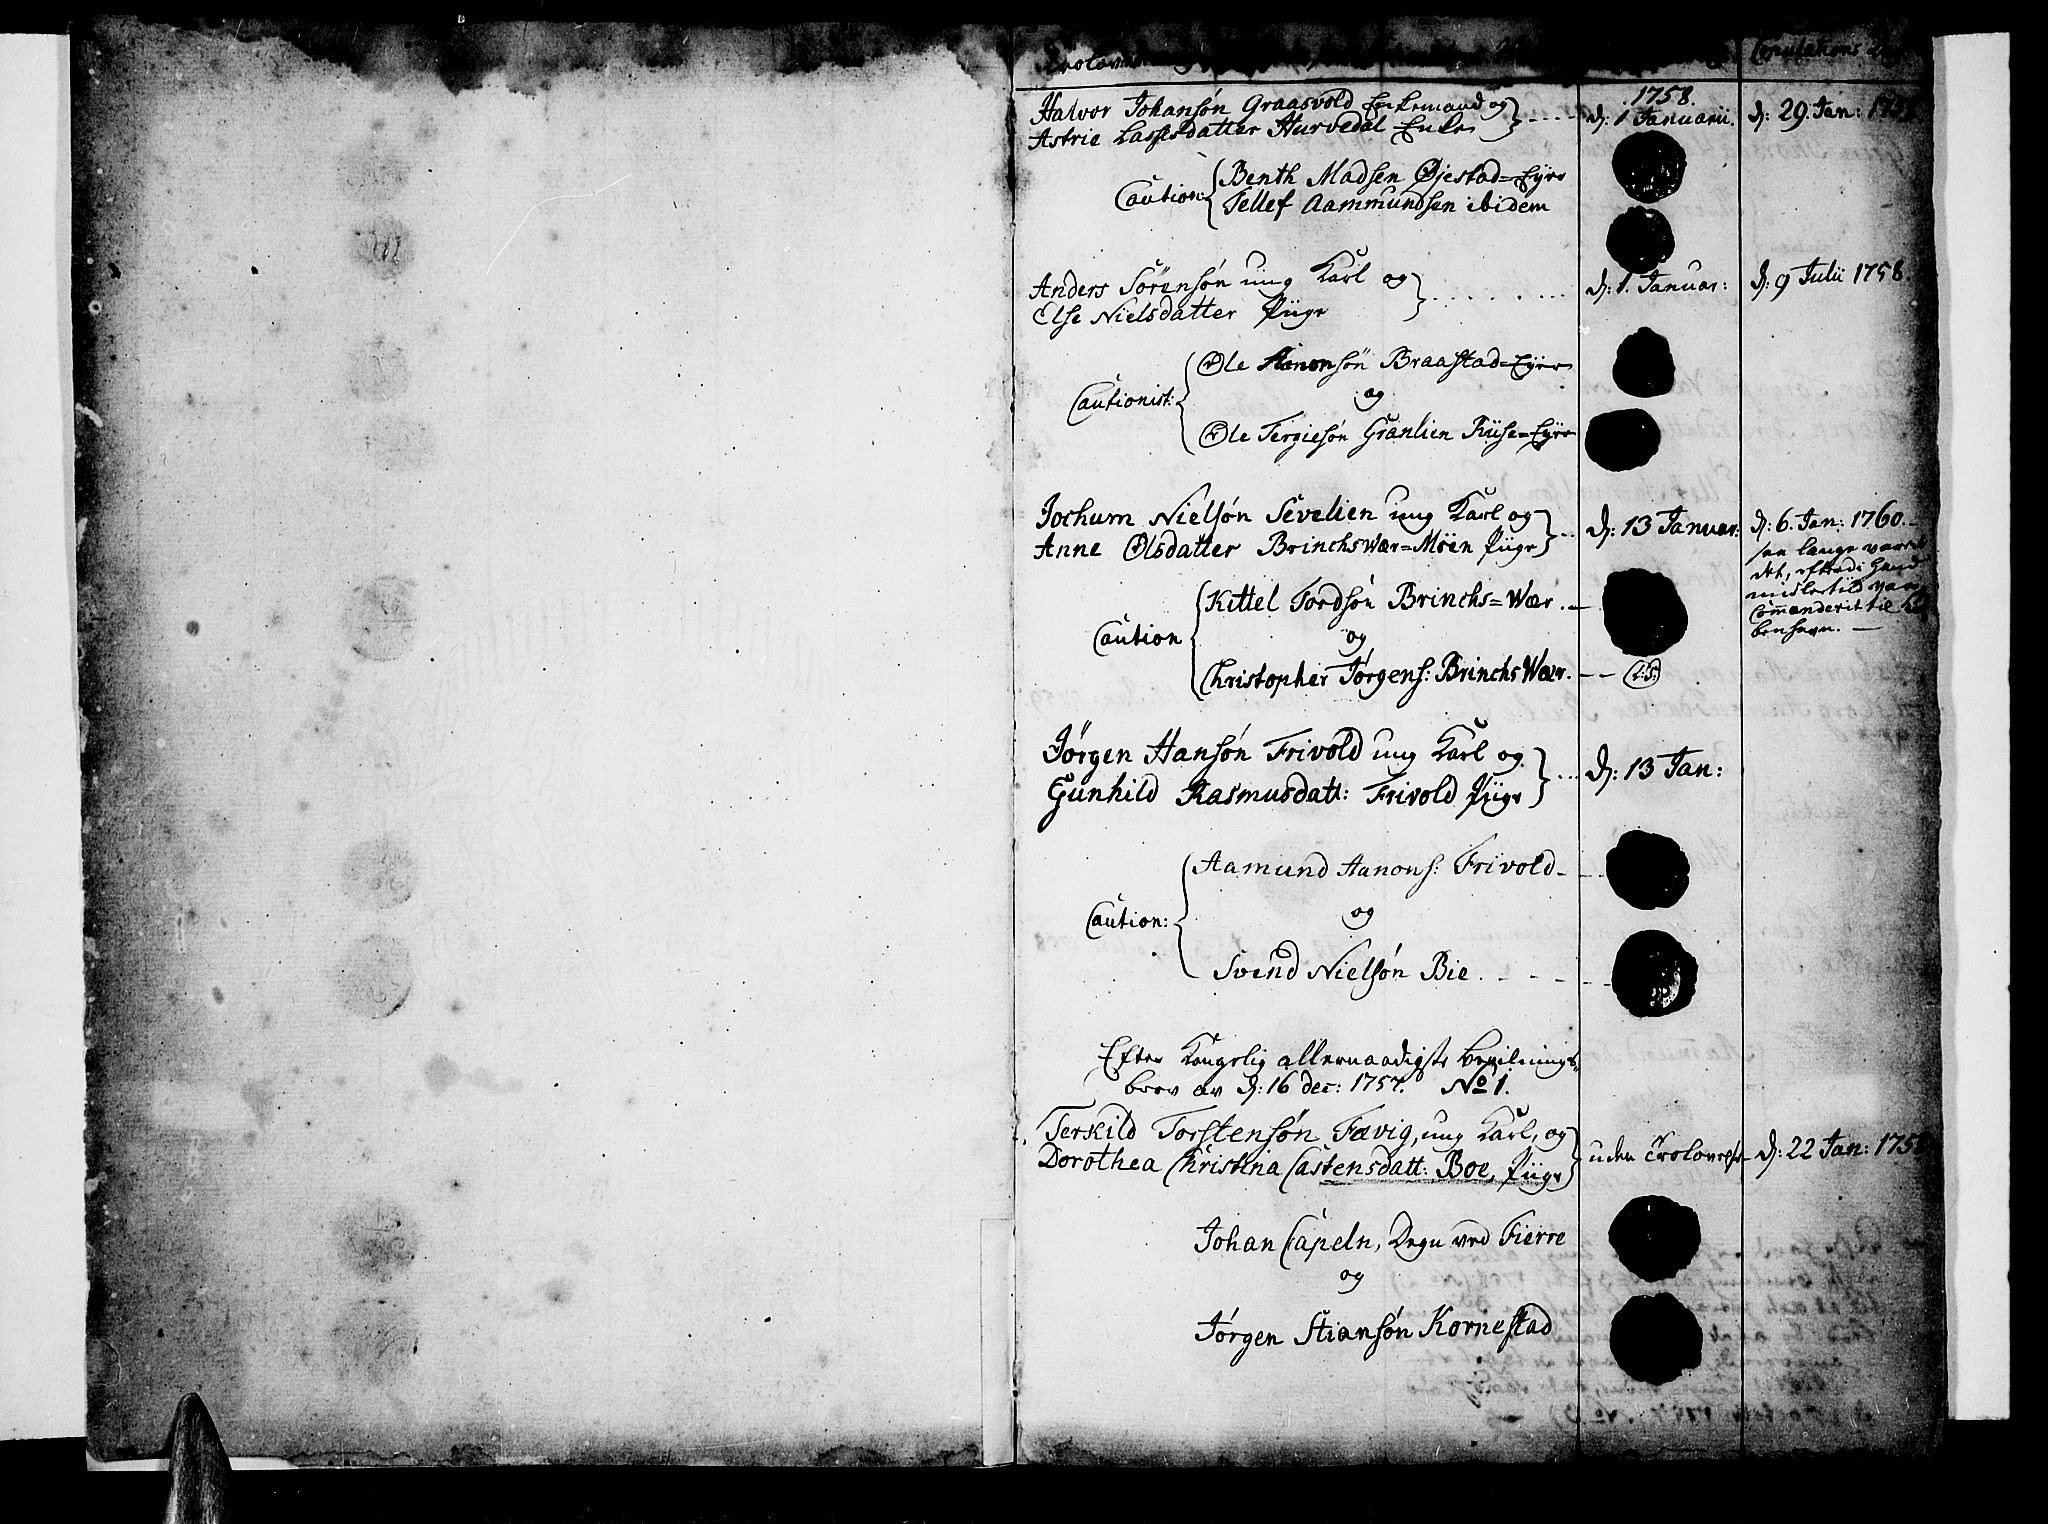 Copulations Dag
1758.
Halvor Johansøn Graasvold Enkemand og
Astrie Lassesdatter Hurvedal Enke
d: 1 Januarii.
d: 29. Jan: 1758
Caution: Benth Madsen Øjestad=Eyre
Tellef Aammundsen ibidem
Anders Sörensøn ung Karl og
Else Nielsdatter Piige
d: 1. Januar:
d: 9 Julii 1758.
Cautionist: Ole Aanonsøn Braastad=Eyre
og
Ole Tergiesøn Granlien Riise=Eyre
Jochum Nielsøn Sevelien ung Karl og
Anne Olsdatter Brinchswær=Möen Piige
d: 13 Januar:
d: 6. Jan: 1760.
saa længe varede
det, efterdi hand
midlertiid var
Commanderit til
benhavn.
Kittel Tordsön Brinchs=Wær.
Caution
og
Christopher Jørgens: Brinchs Wær.
L:S:
Jørgen Hansøn Frivold ung Karl og
Gunhild Rasmusdatt: Frivold Piige
d: 13 Jan:
Aamund Aanons: Frivold
Caution:
og
Svend Nielsøn Bie
Efter Kongelig allernaadigste bevilnings
brev av d: 16 dec: 1757. No 1.
Terkild Torstensøn Fævig, ung Karl, og
Dorothea Christina Castensdatt: Boe, Piige
uden Trolovelse
d: 22 Jan: 1758
Johan Capeln, Degn ved Fierre
og
Jørgen Stiansøn Kornestad